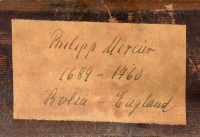 Philipp Mercier
1689 - 1760
Berlin - England